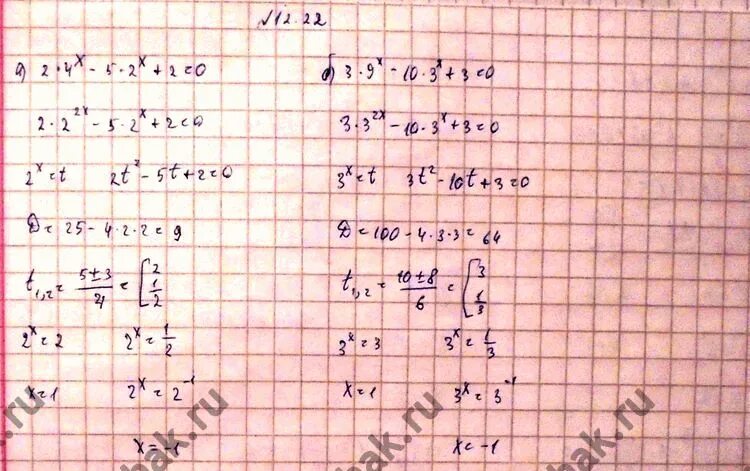 №12.22
а) 2·4^x - 5·2^x + 2 = 0
2·2^{2x} - 5·2^x + 2 = 0
2^x = t 2t^2 - 5t + 2 = 0
D = 25 - 4·2·2 = 9
t_{1,2} = \frac{5±3}{4} = [2; \frac{1}{2}
2^x = 2 2^x = \frac{1}{2}
x = 1 2^x = 2^{-1}
x = -1
б) 3·9^x - 10·3^x + 3 = 0
3·3^{2x} - 10·3^x + 3 = 0
3^x = t 3t^2 - 10t + 3 = 0
D = 100 - 4·3·3 = 64
t_{1,2} = \frac{10±8}{6} = [3; \frac{1}{3}
3^x = 3 3^x = \frac{1}{3}
x = 1 3^x = 3^{-1}
x = -1
bak.ru